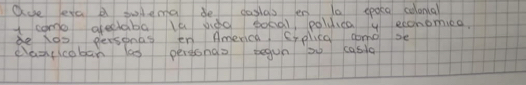 Que era el sistema de castas en la epoca colonial
y como afectaba la vida social, politica y economica,
de las personas en America. Explica como se
clasificaban las personas segun su casta